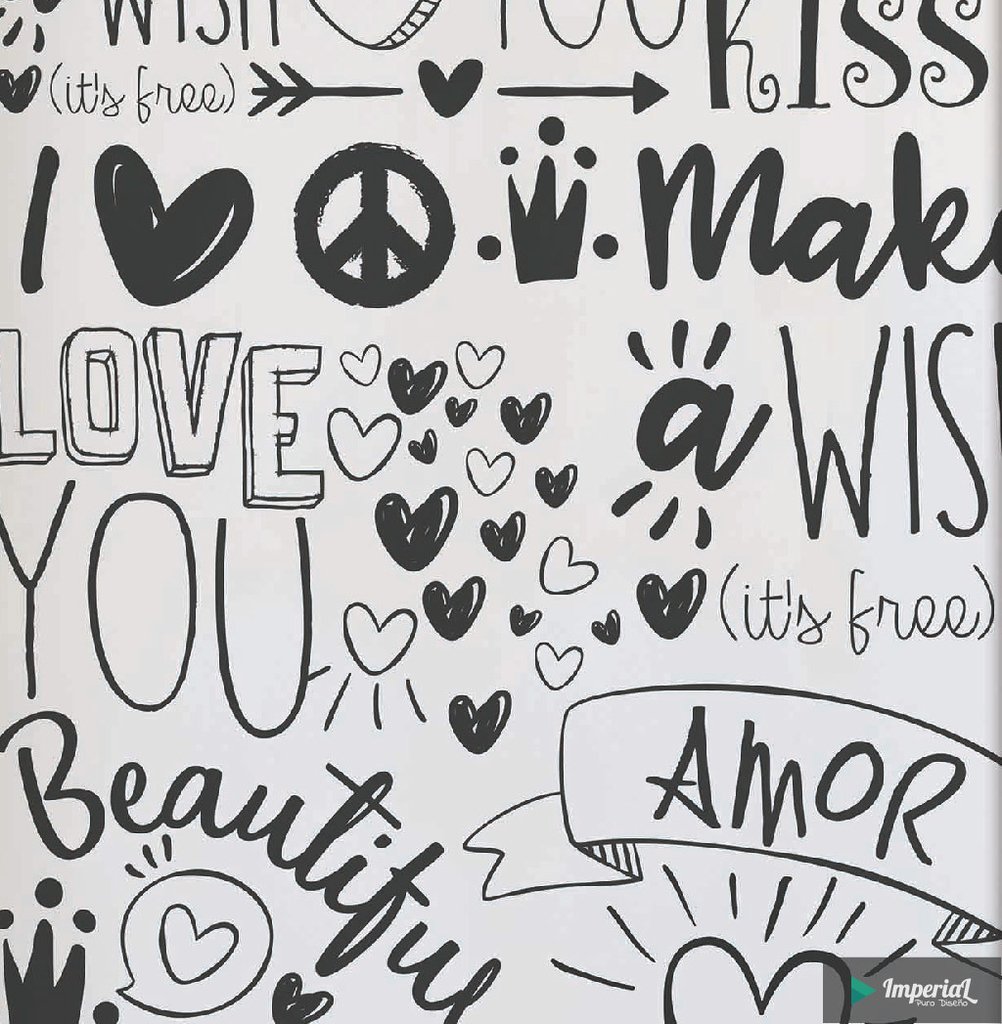 WISH YOU KISS
(it's free)
I
Make
LOVE
a WIS
YOU
(it's free)
AMOR
Beautiful
Imperial
Puro Diseño